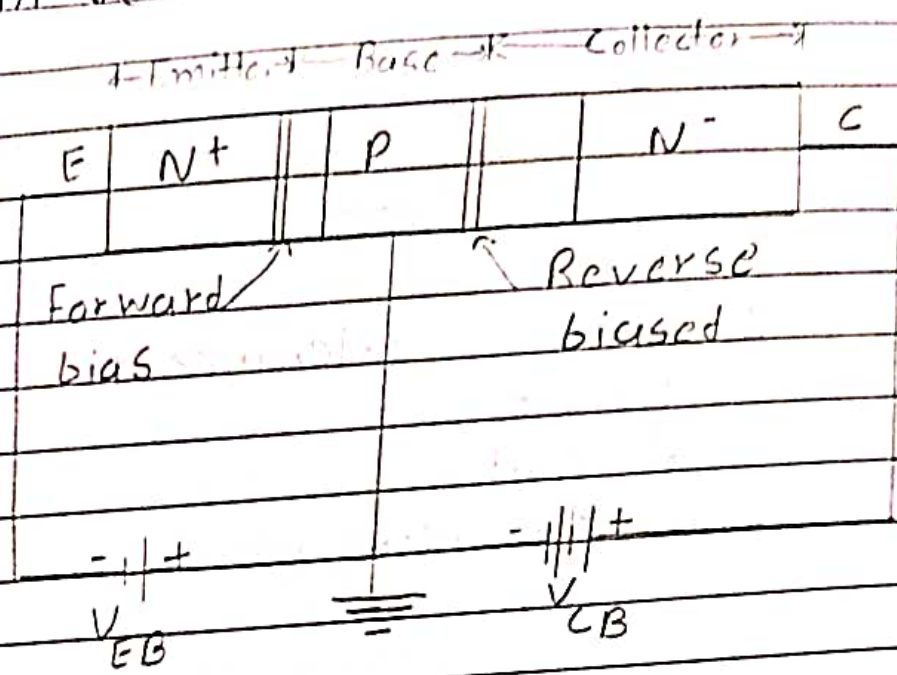 Emitter Base Collector
E N+ P N- C
Forward Reverse
bias biased
- + - +
VEB VCB